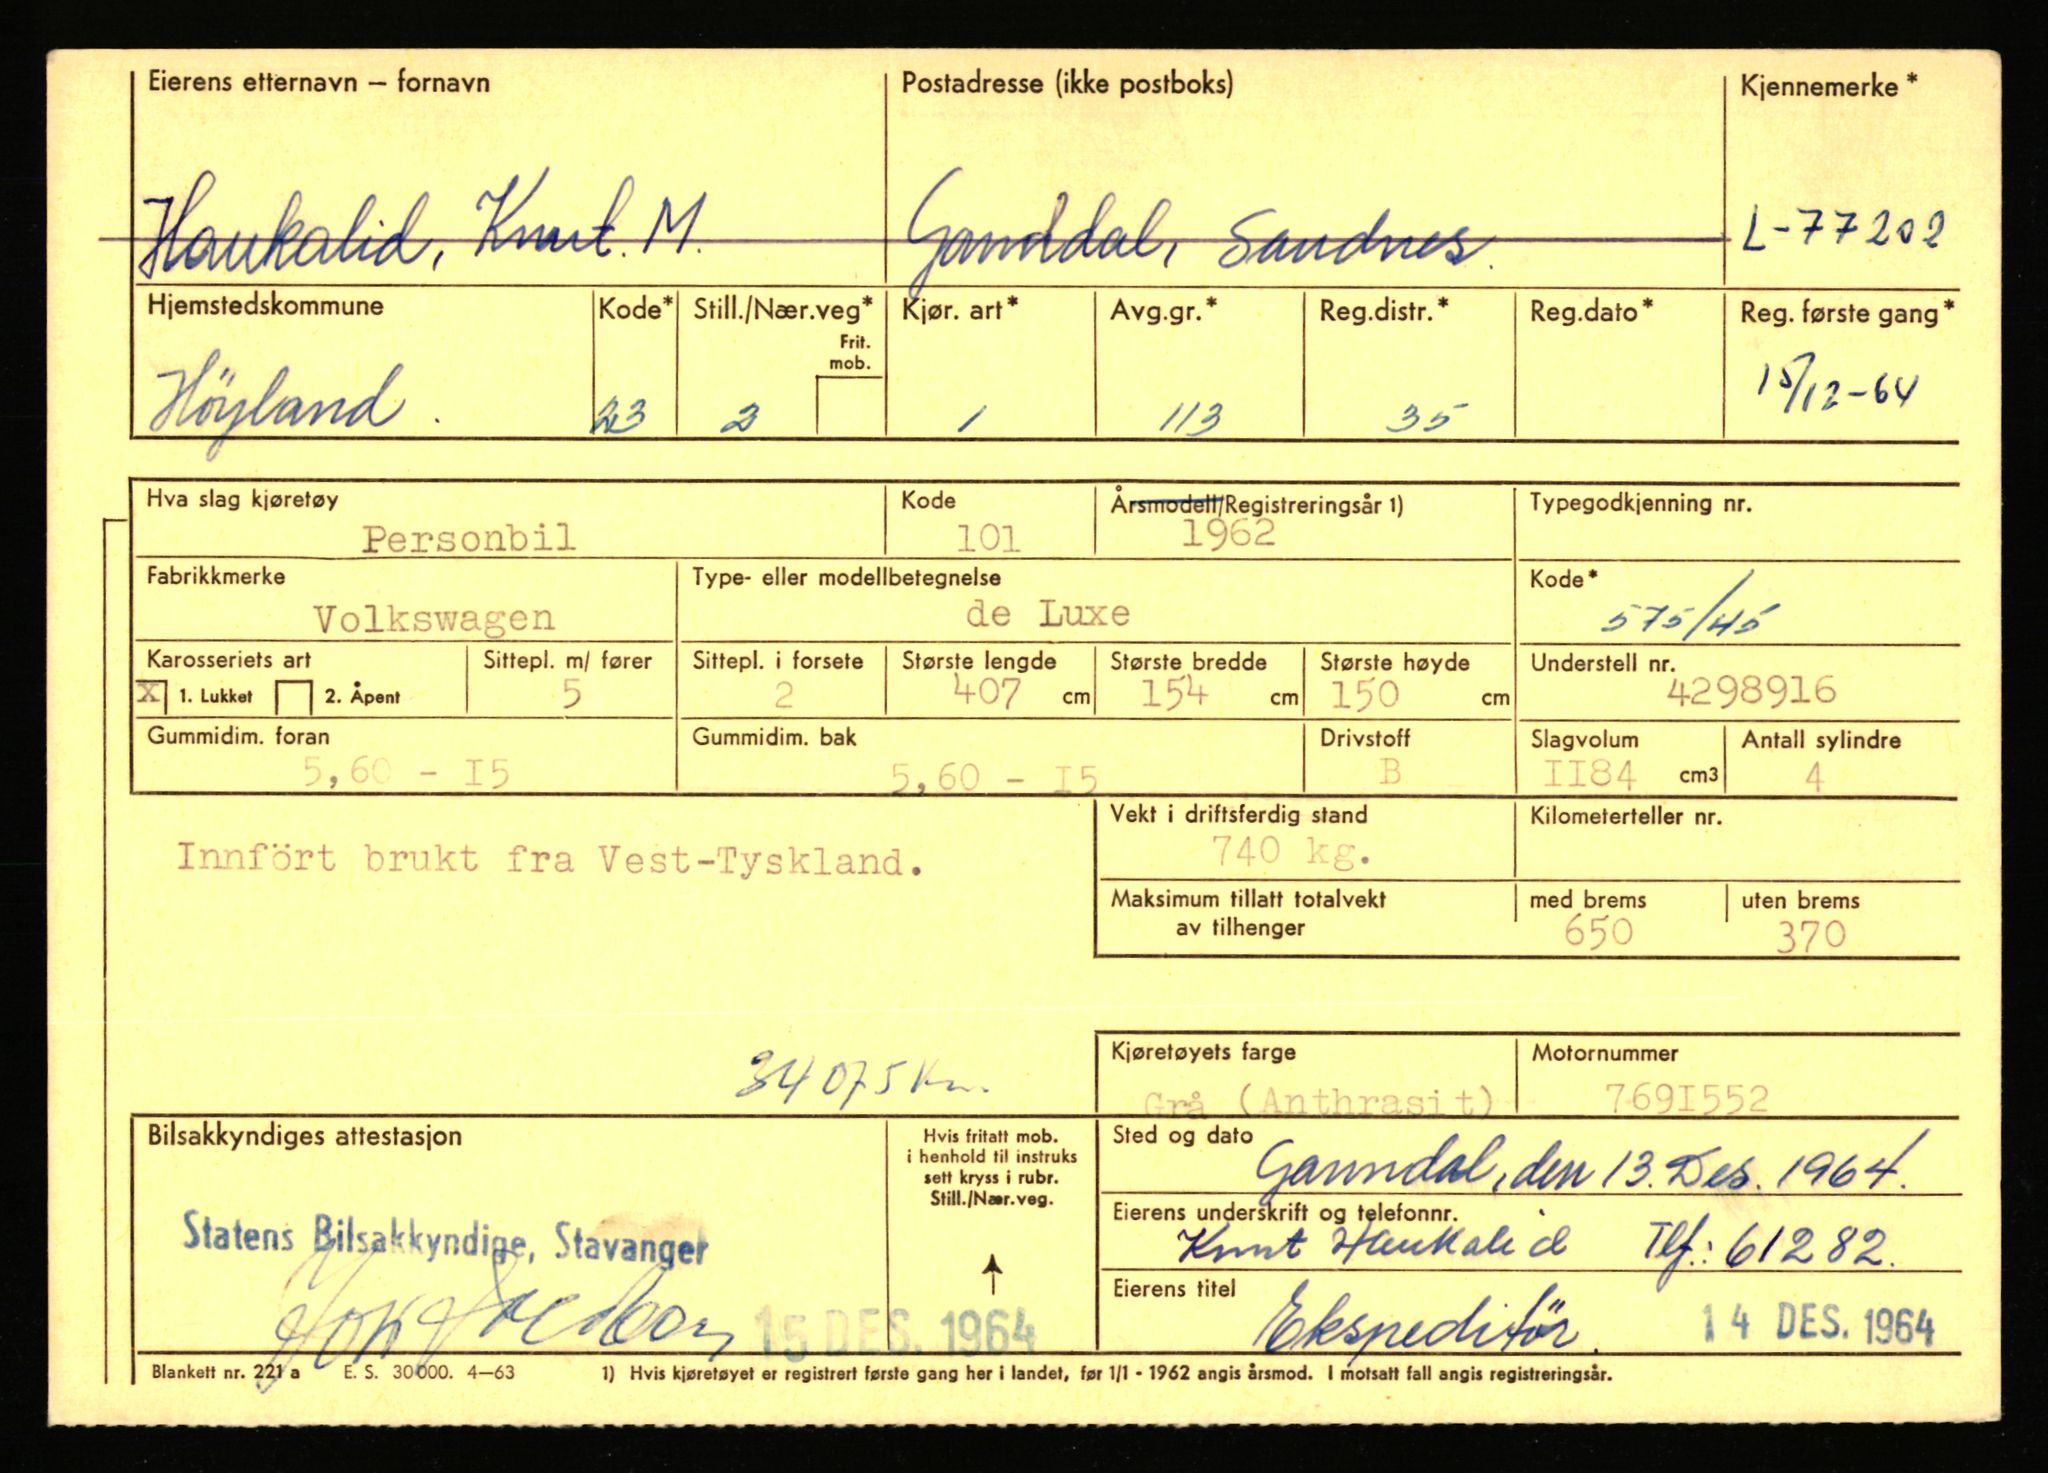 Eierens etternavn – fornavn Postadresse (ikke postboks) Kjennemerke*
Haukalid, Knut. M. Ganddal, Sandnes. L-77202
Hjemstedskommune Kode* Still./Nær.veg* Kjør. art* Avg.gr.* Reg.distr.* Reg.dato* Reg. første gang*
Frit.
mob.
Höyland. 23 2 1 113 35 15/12-64
Hva slag kjøretøy Kode Årsmodell/Registreringsår 1) Typegodkjenning nr.
Personbil 101 1962
Fabrikkmerke Type- eller modellbetegnelse Kode*
Volkswagen de Luxe 575/45
Karosseriets art Sittepl. m/ fører Sittepl. i forsete Største lengde Største bredde Største høyde Understell nr.
X 1. Lukket 2. Åpent 5 2 407 cm 154 cm 150 cm 4298916
Gummidim. foran Gummidim. bak Drivstoff Slagvolum Antall sylindre
5,60 - I5 5,60 - I5 B II84 cm3 4
Vekt i driftsferdig stand Kilometerteller nr.
Innfört brukt fra Vest-Tyskland. 740 kg.
Maksimum tillatt totalvekt med brems uten brems
av tilhenger 650 370
Kjøretøyets farge Motornummer
34075 Km. Grå (Anthrasit) 769I552
Bilsakkyndiges attestasjon Hvis fritatt mob.
i henhold til instruks
sett kryss i rubr.
Still./Nær.veg.
Sted og dato
Ganndal, den 13. Des. 1964.
Eierens underskrift og telefonnr.
Statens Bilsakkyndige, Stavanger Knut Haukalid Tlf.: 61282.
Eierens titel
15 DES. 1964 Ekspeditör. 14 DES. 1964
Blankett nr. 221 a E. S. 30000. 4–63 1) Hvis kjøretøyet er registrert første gang her i landet, før 1/1 - 1962 angis årsmod. I motsatt fall angis registreringsår.